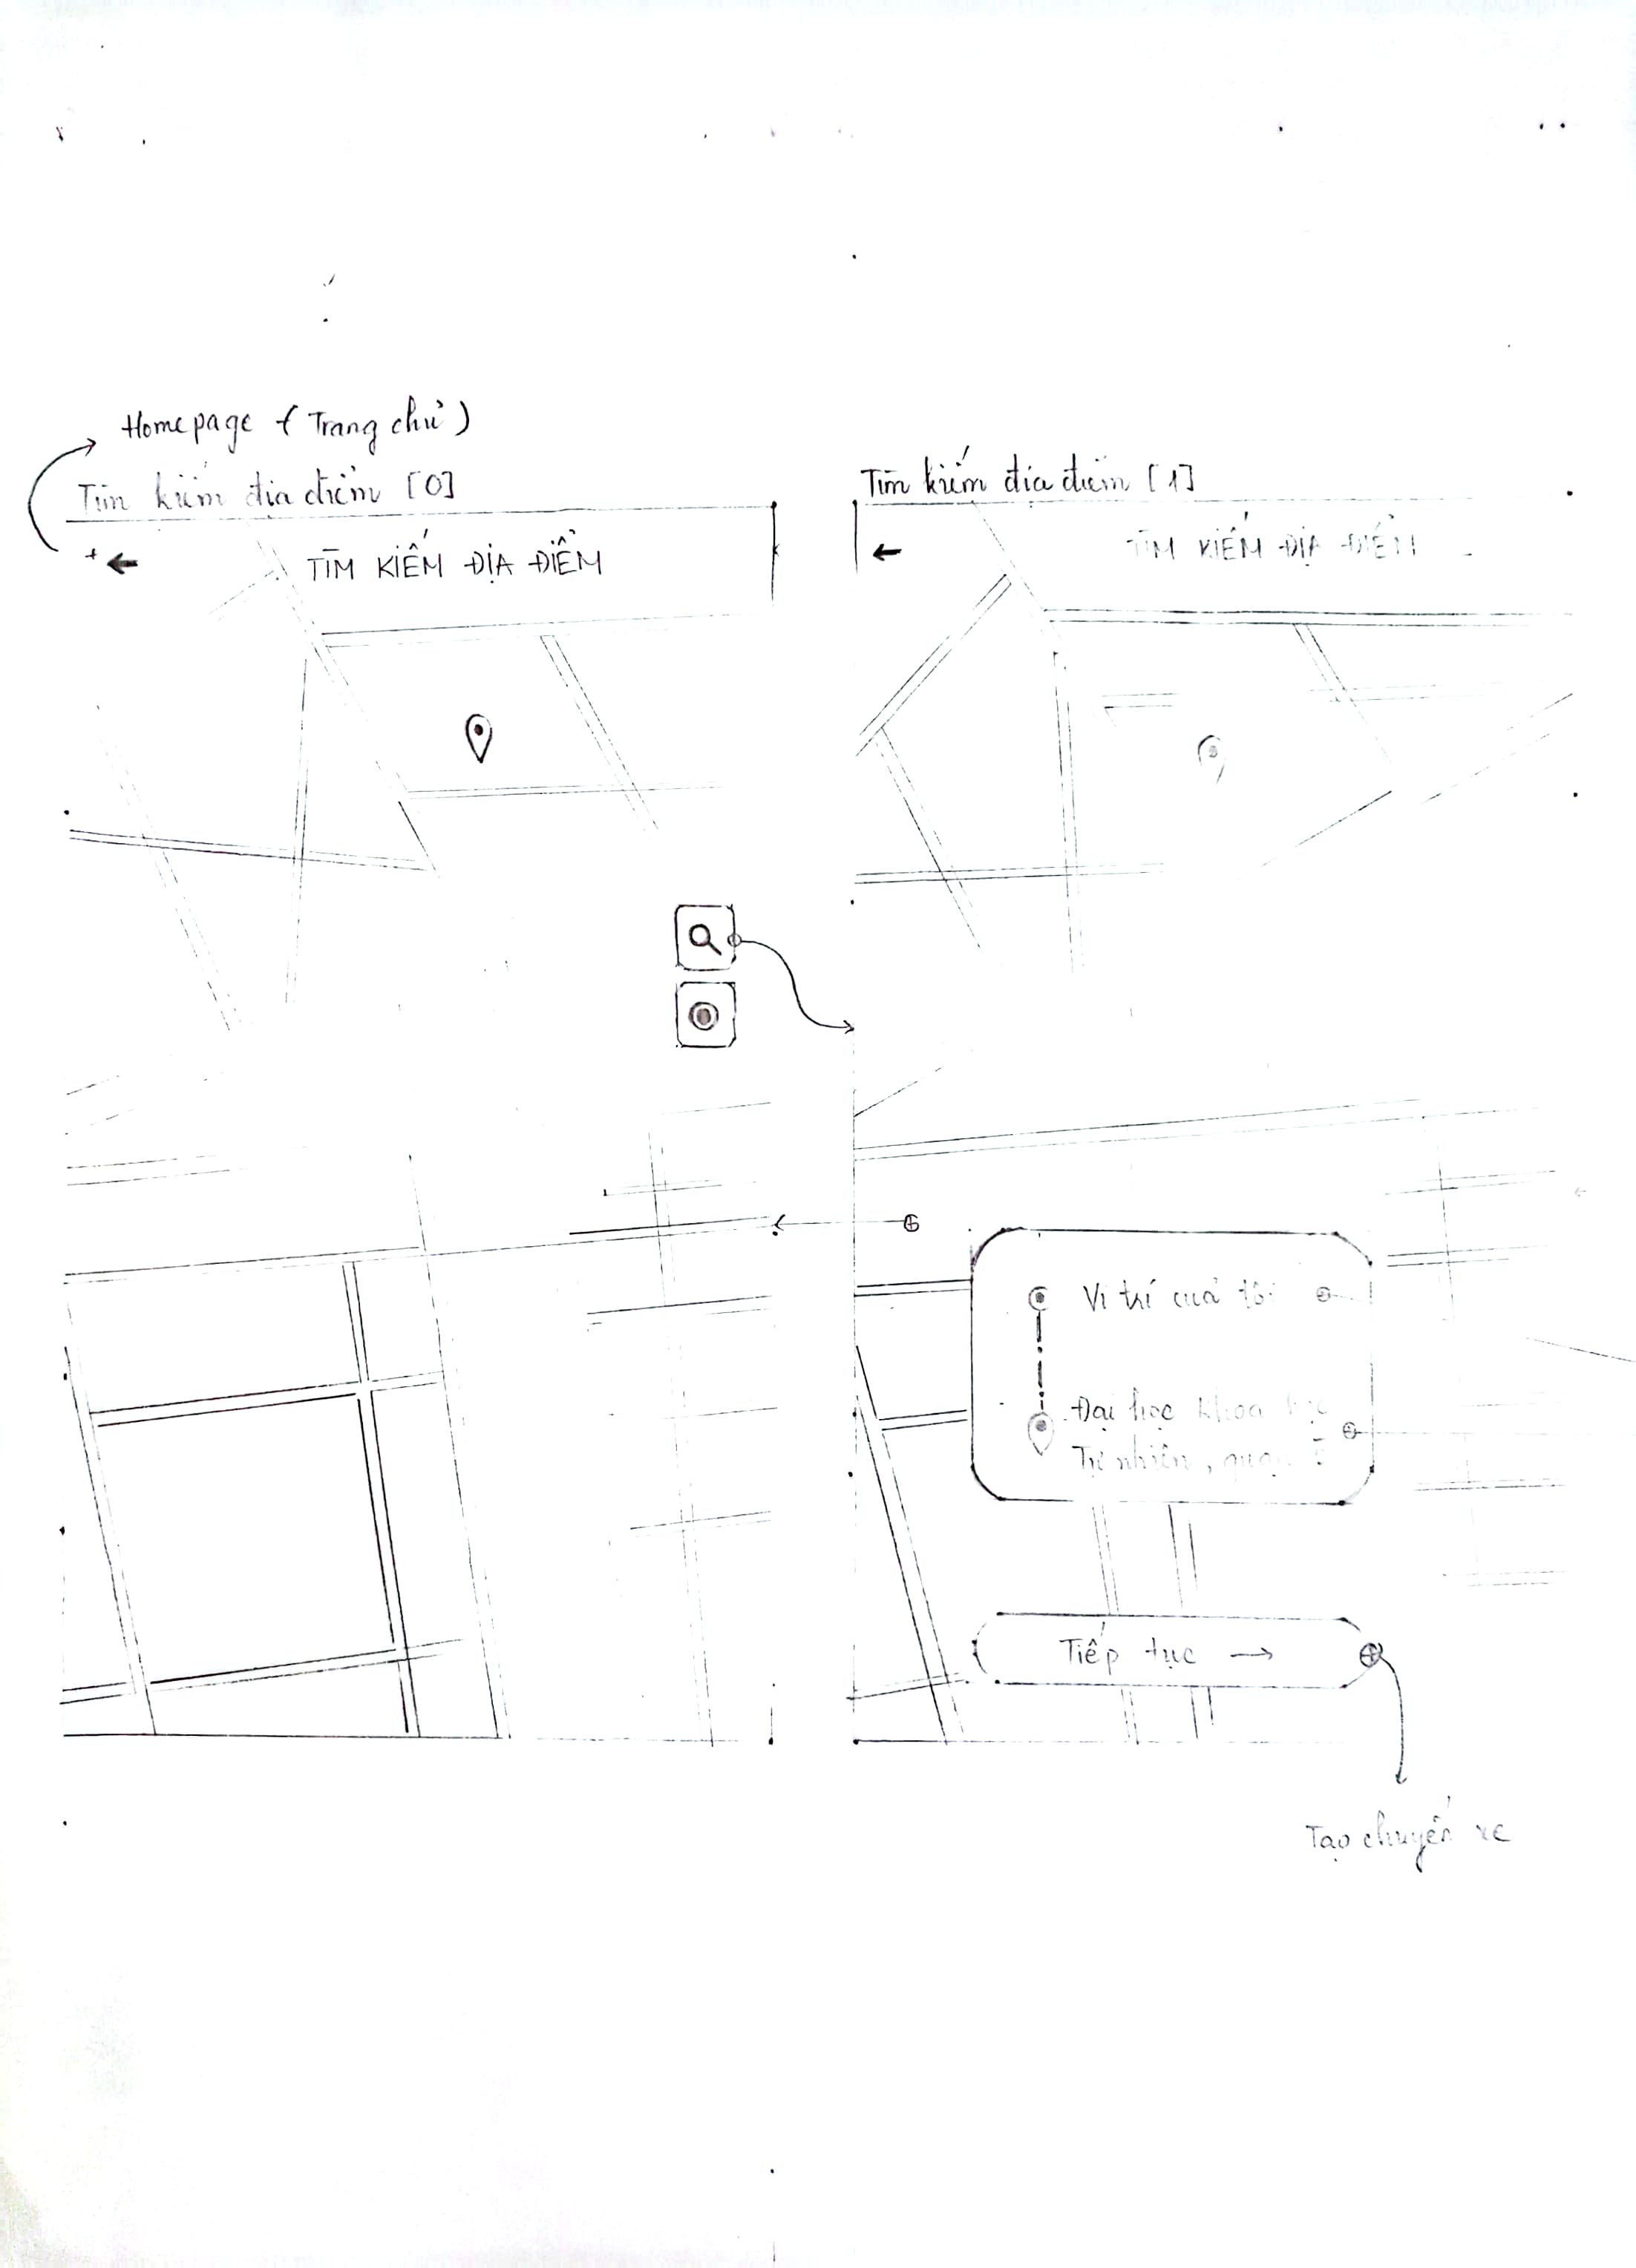 Homepage (Trang chủ)
Tìm kiếm địa điểm [0]
TÌM KIẾM ĐỊA ĐIỂM
Tìm kiếm địa điểm [1]
TÌM KIẾM ĐỊA ĐIỂM
Vị trí của tôi
Đại học Khoa học
Tự nhiên, quận
Tiếp tục →
Tạo chuyến xe